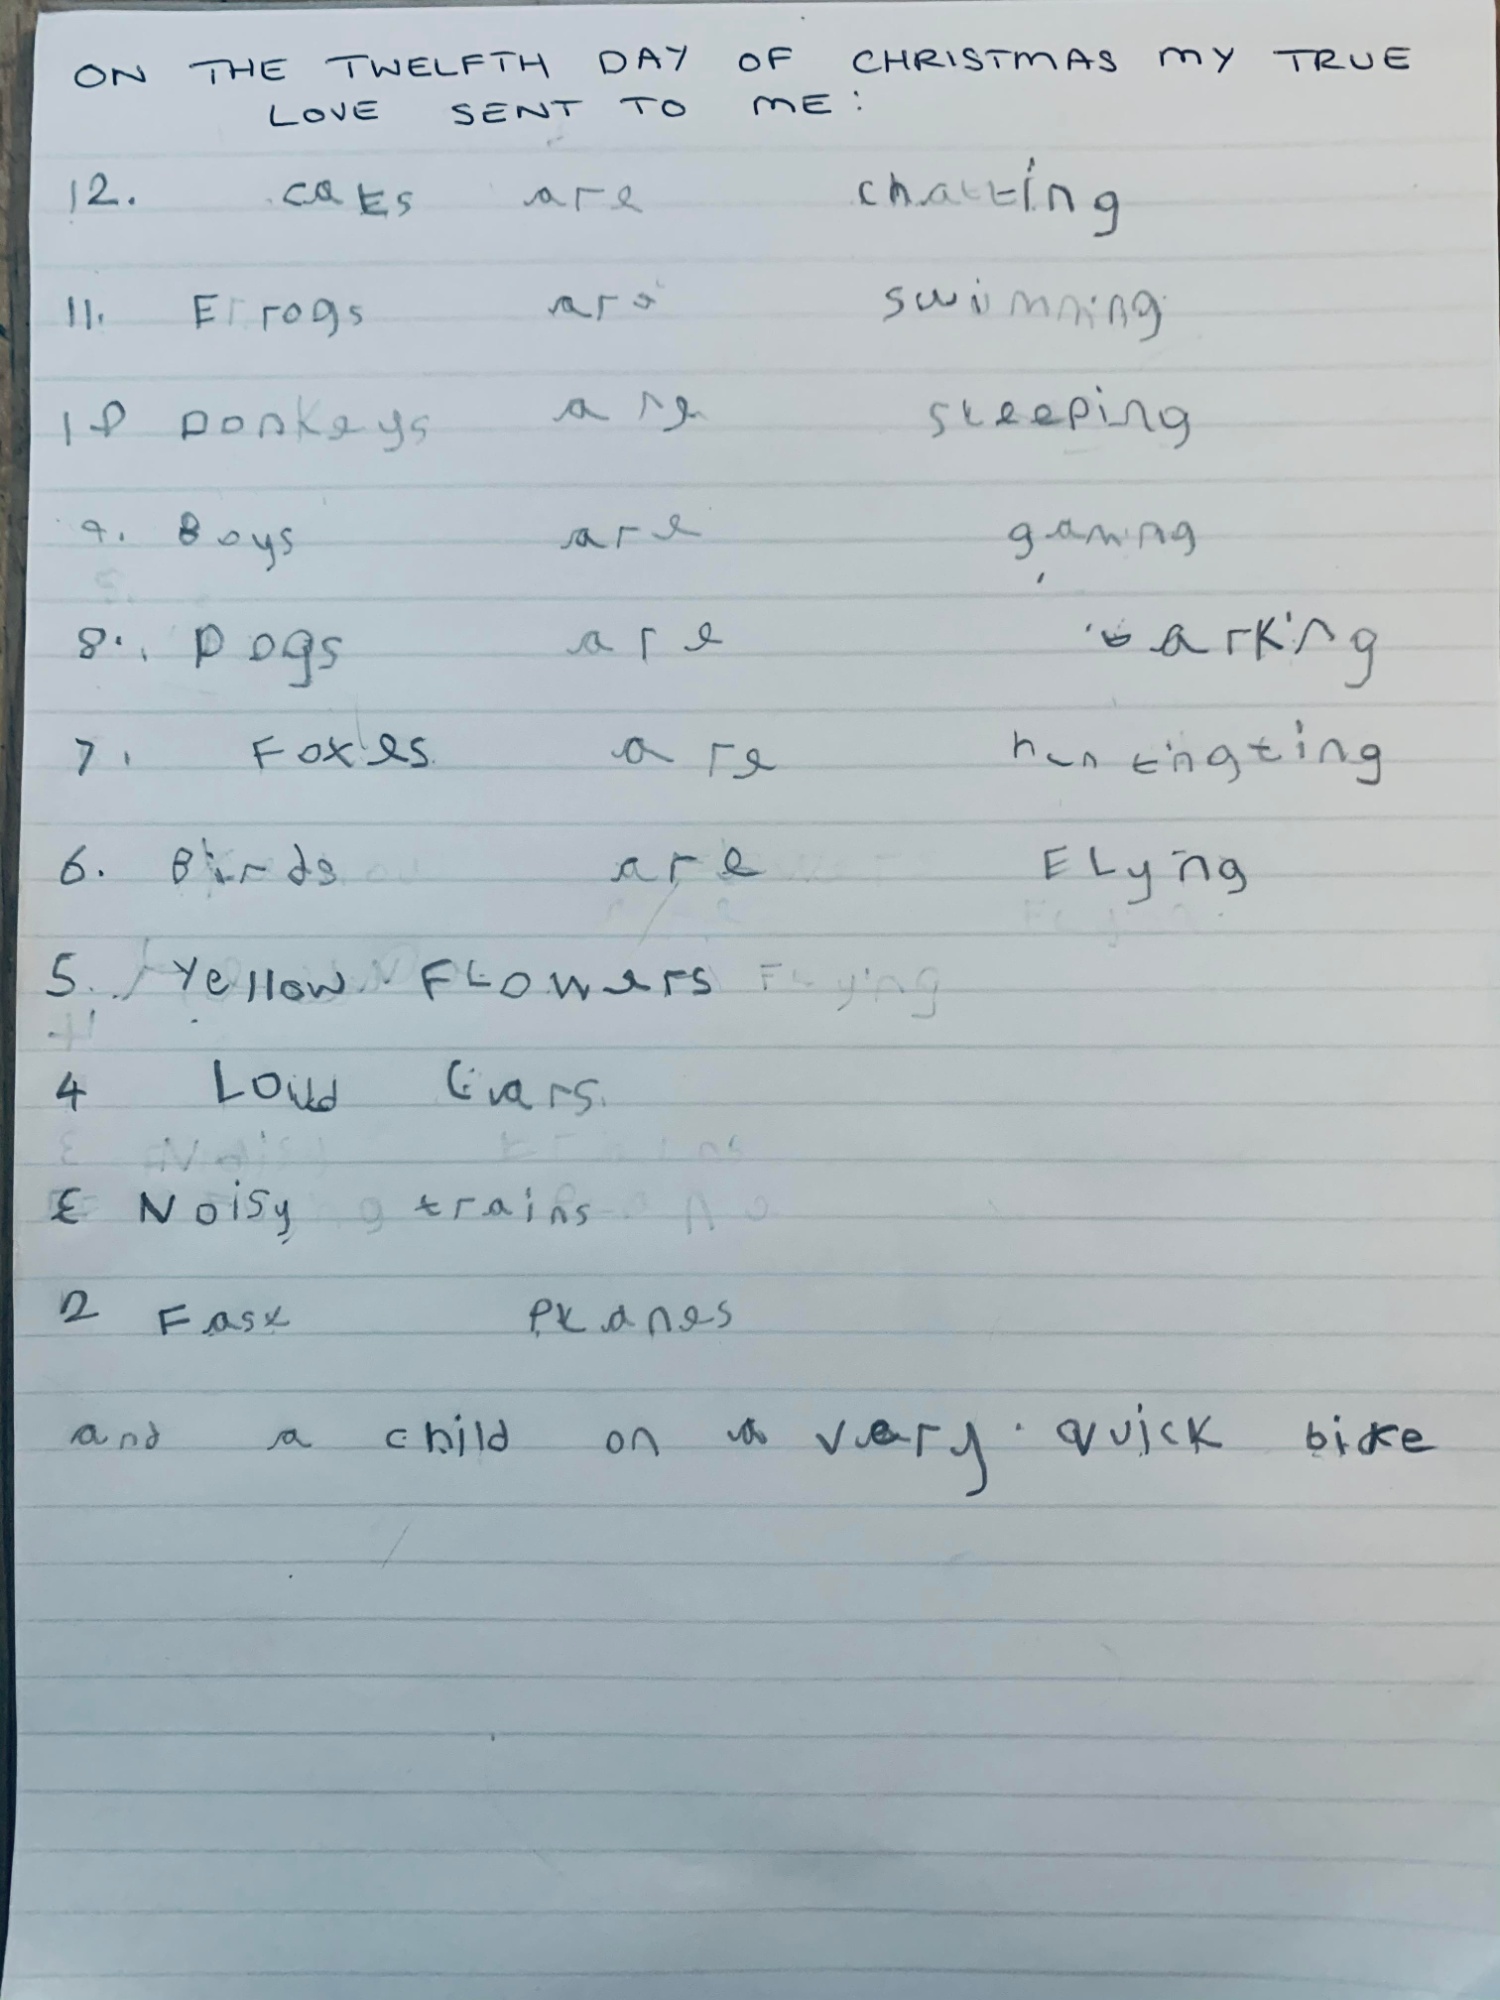 ON THE TWELFTH DAY OF CHRISTMAS MY TRUE
LOVE SENT TO ME:
12. cats are chatting
11. Frogs are swimming
10 Donkeys are sleeping
9. Boys are gaming
8. Dogs are barking
7. Foxes are huntingting
6. Birds are Flying
5. Yellow Flowers
4 Loud Cars.
3 Noisy trains
2 Fast Planes
and a child on a very quick bike